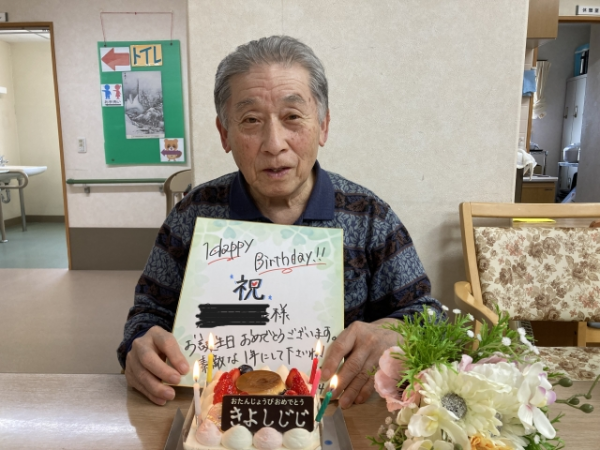 トイレ
Happy
Birthday!!
祝
様
お誕生日おめでとうございます。
素敵な1年にして下さいね。
おたんじょうびおめでとう
きよしじじ